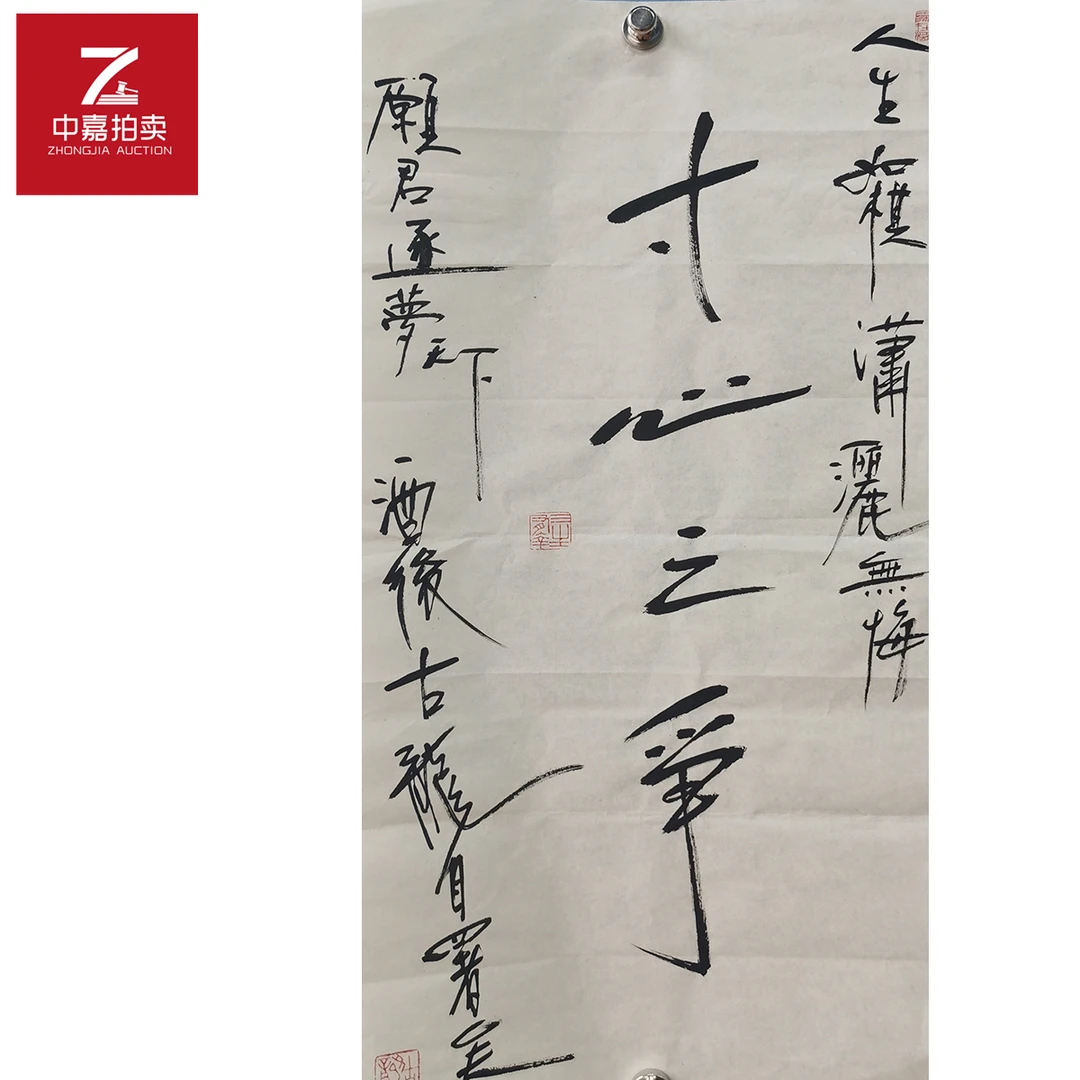 中嘉拍卖
ZHONGJIA AUCTION
人生如棋 瀟灑無悔
寸心之爭
願君逐夢天下
酒後古龍自署